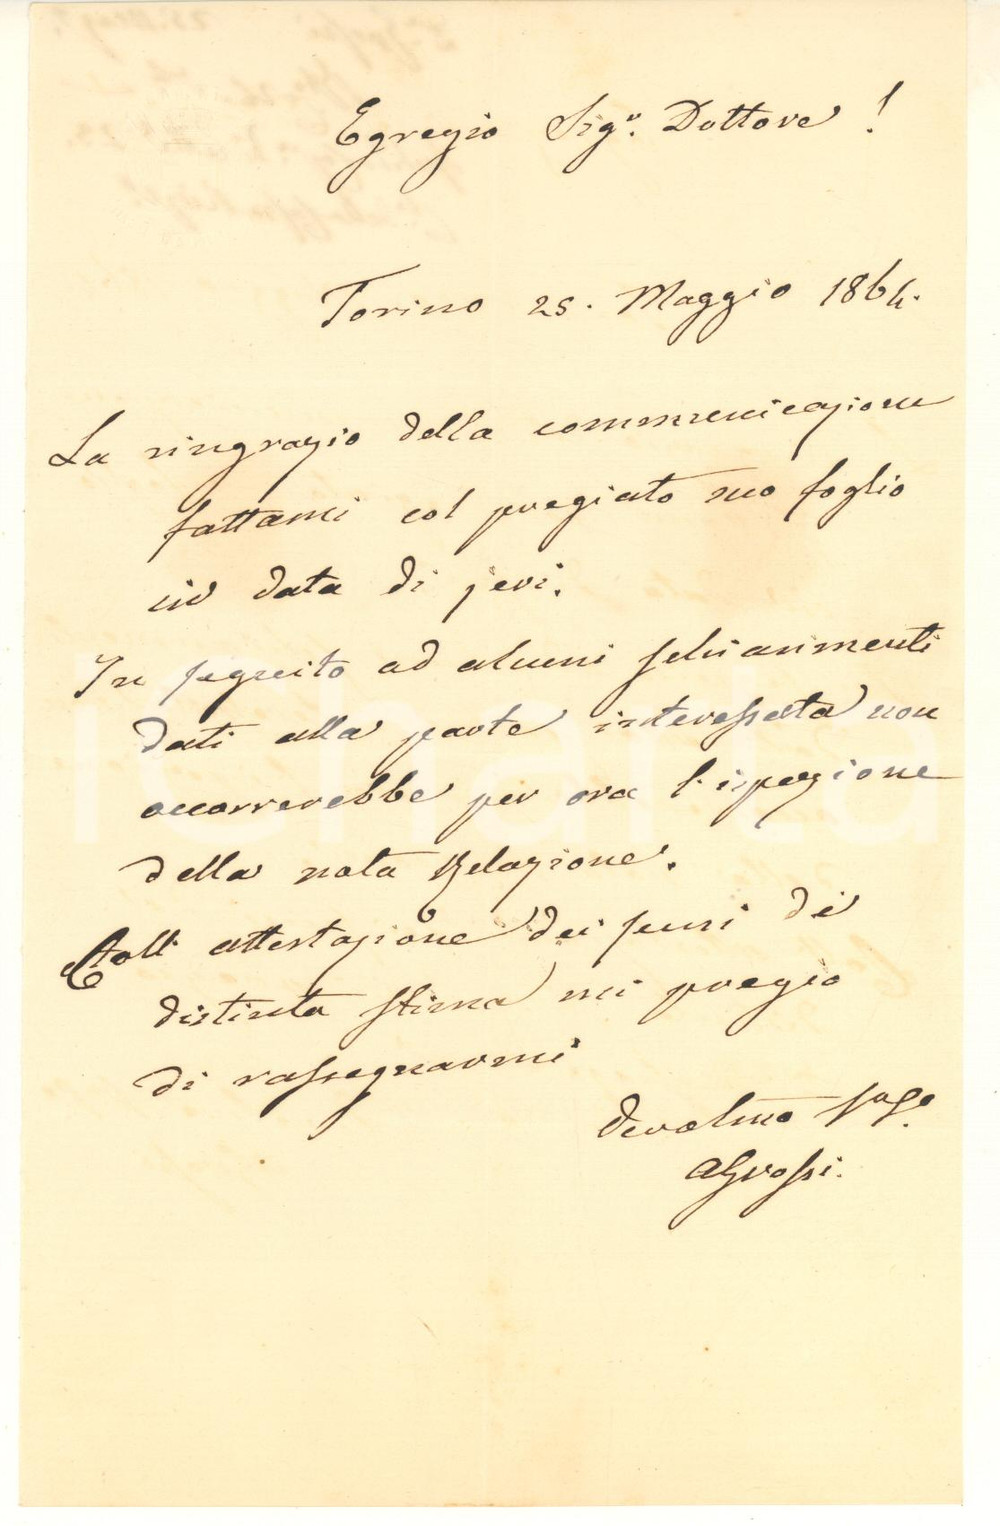 Egregio Sigr. Dottore !
Torino 25. Maggio 1864.
La ringrazio della communicazione
fattami col pregiato suo foglio
in data di jeri.
In seguito ad alcuni schiarimenti
dati alla parte interessata non
occorrerebbe per ora l'ispezione
della nota Relazione.
Coll' attestazione dei sensi di
distinta stima mi pregio
di rassegnarmi
Devotmo
AGrossi.